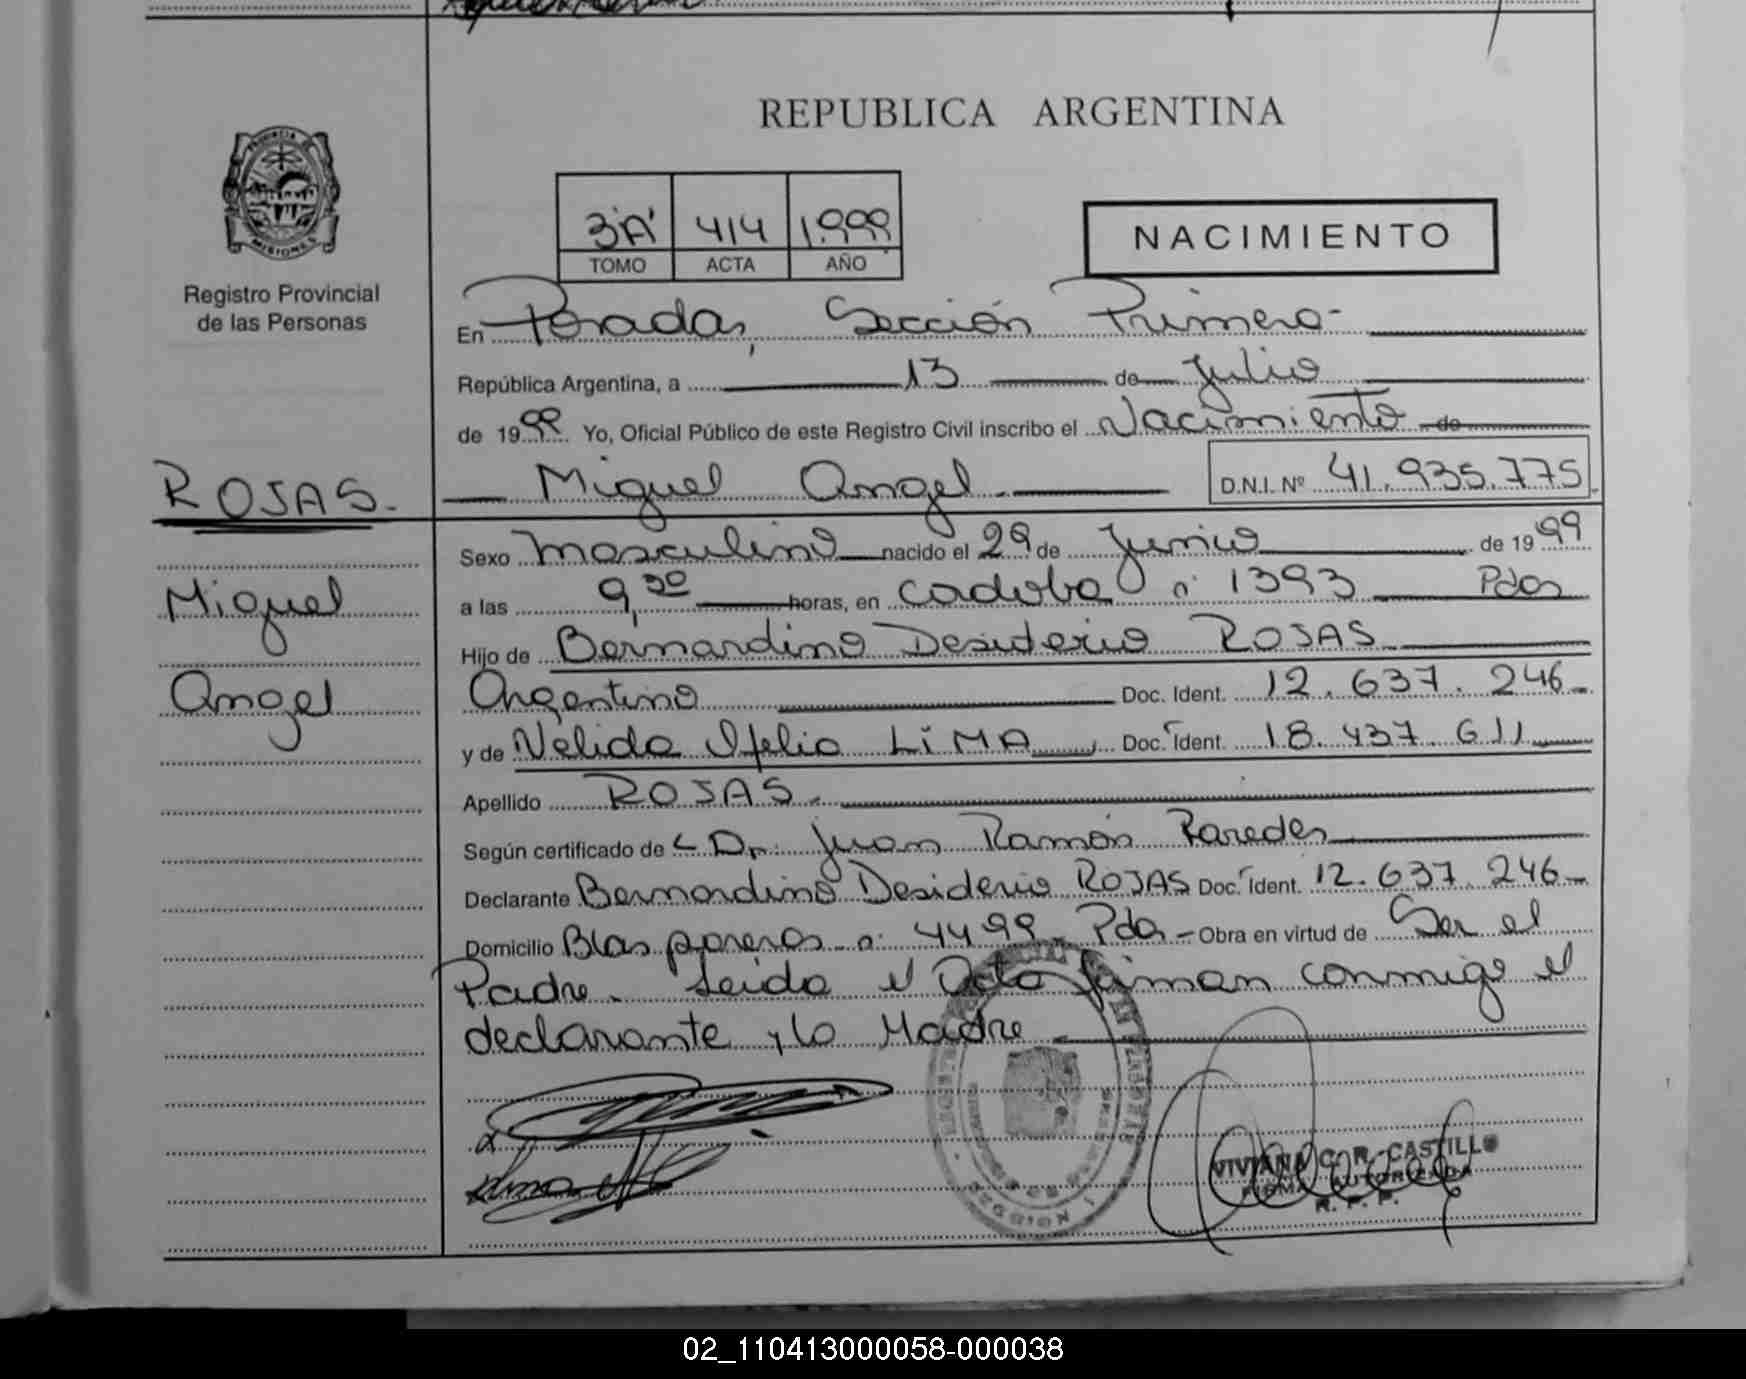 REPUBLICA ARGENTINA
PROVINCIA DE MISIONES
Registro Provincial
de las Personas
3"A" 414 1.999
TOMO ACTA AÑO
NACIMIENTO
En Posadas, Sección Primera-
República Argentina, a 13 de Julio
de 1999 Yo, Oficial Público de este Registro Civil inscribo el Nacimiento de
Miguel Angel. D.N.I. Nº 41.935.775
ROJAS.
Miguel
Angel
Sexo Masculino nacido el 29 de Junio de 1999
a las 9,30 horas, en Cordoba nº 1393 Pdas
Hijo de Bernardino Desiderio ROJAS
Argentino Doc. Ident. 12.637.246-
y de Nelida LiMA Doc. Ident. 18.437.611
Apellido ROJAS.
Según certificado de Dr. Juan Ramón Paredes
Declarante Bernardino Desiderio ROJAS Doc. Ident. 12.637.246-
Domicilio Blas nº 4499 Pdas- Obra en virtud de Ser el
Padre. Leida el Acta firman conmigo el
declarante y la Madre
SECCION 1
VIVIANA COR. CASTILLO
FIRMA AUTORIZADA
R. P. P.
02_110413000058-000038